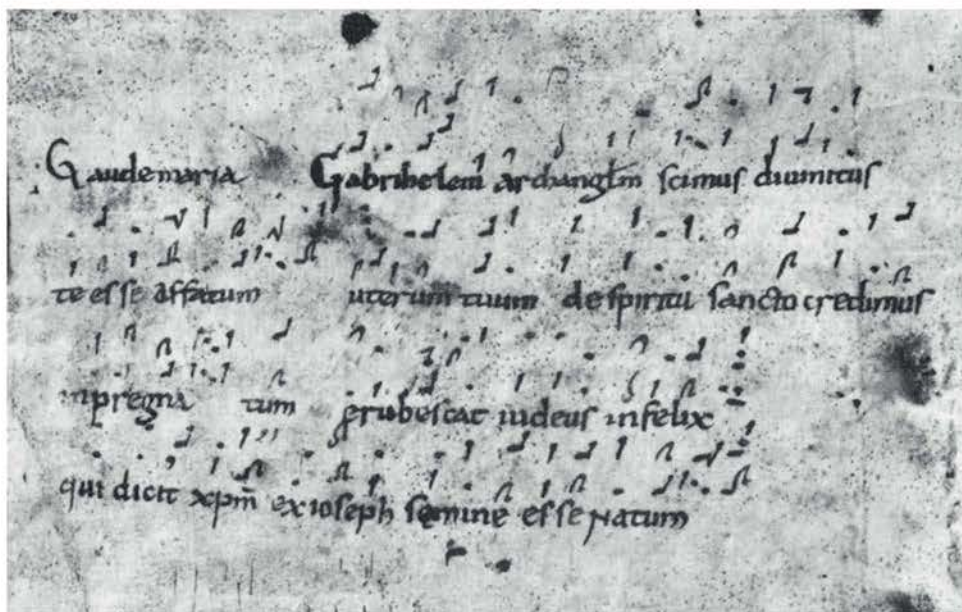 Gaude maria Gabrihelem archanglm scimus divinitus
te esse affatum uterum tuum de spiritu sancto credimus
inpregna tum erubescat iudeus infelix
qui dicit xpm ex ioseph semine esse natum